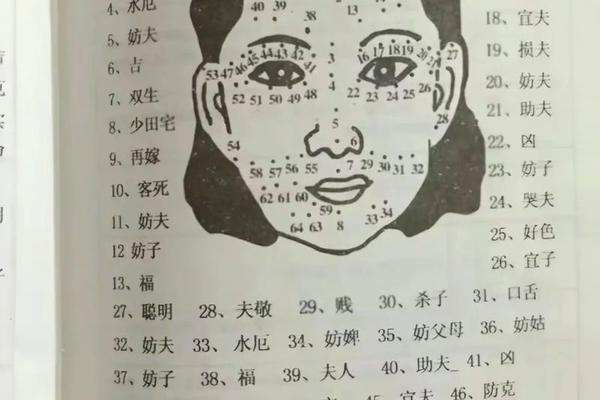 4、水厄
5、妨夫
6、吉
7、双生
8、少田宅
9、再嫁
10、客死
11、妨夫
12 妨子
13、福
40 39 38 13
44 43 42 45 46 47 53 41
16 17 18 19 20 21 27
3
52 51 50 49 48
4
22 23 24 25 26
28
5
6
54
58 57 56 55
7 29 30 31 32
62 61 60
59
33 34
64 63 8
18、宜夫
19、损夫
20、妨夫
21、助夫
22、凶
23、妨子
24、哭夫
25、好色
26、宜子
27、聪明 28、夫敬 29、贱 30、杀子 31、口舌
32、妨夫 33、水厄 34、妨婢 35、妨父母 36、妨姑
37、妨子 38、福 39、夫人 40、助夫 41、凶
45、宜夫 46、防克